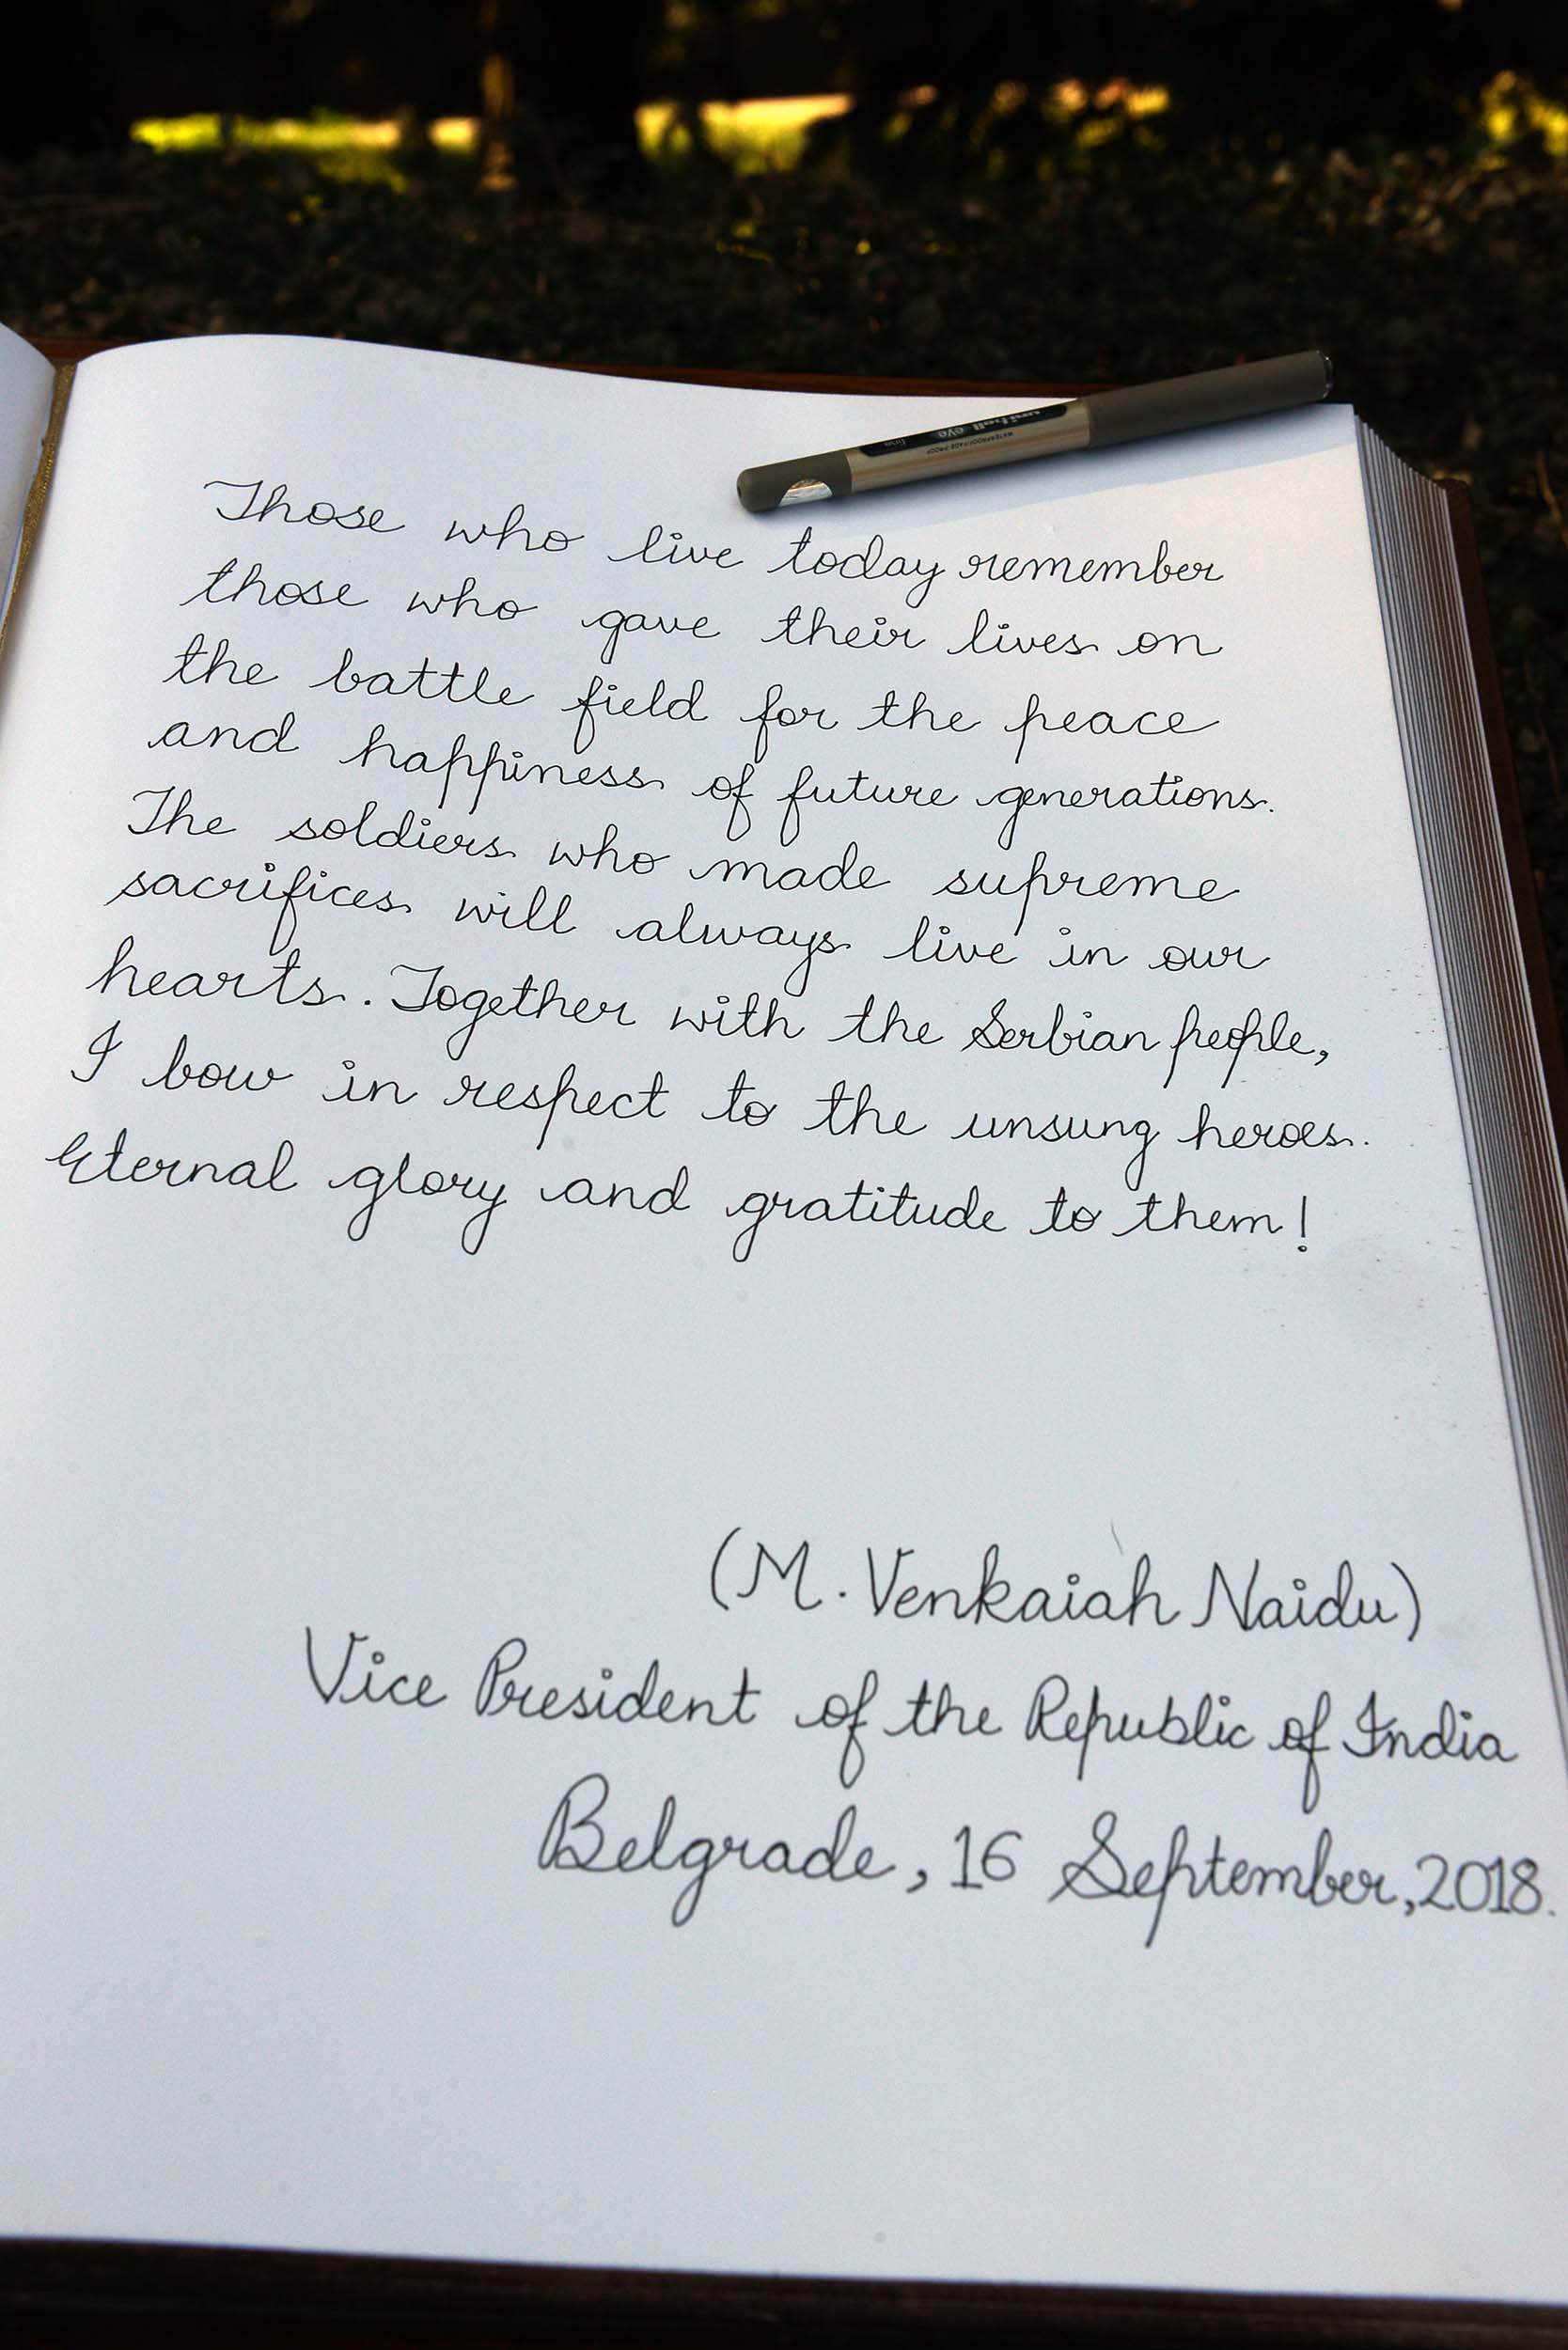 uni-ball eye fine
WATERPROOF/FADE-PROOF
Those who live today remember
those who gave their lives on
the battle field for the peace
and happiness of future generations.
The soldiers who made supreme
sacrifices will always live in our
hearts. Together with the Serbian people,
I bow in respect to the unsung heroes.
Eternal glory and gratitude to them!
(M. Venkaiah Naidu)
Vice President of the Republic of India
Belgrade, 16 September, 2018.